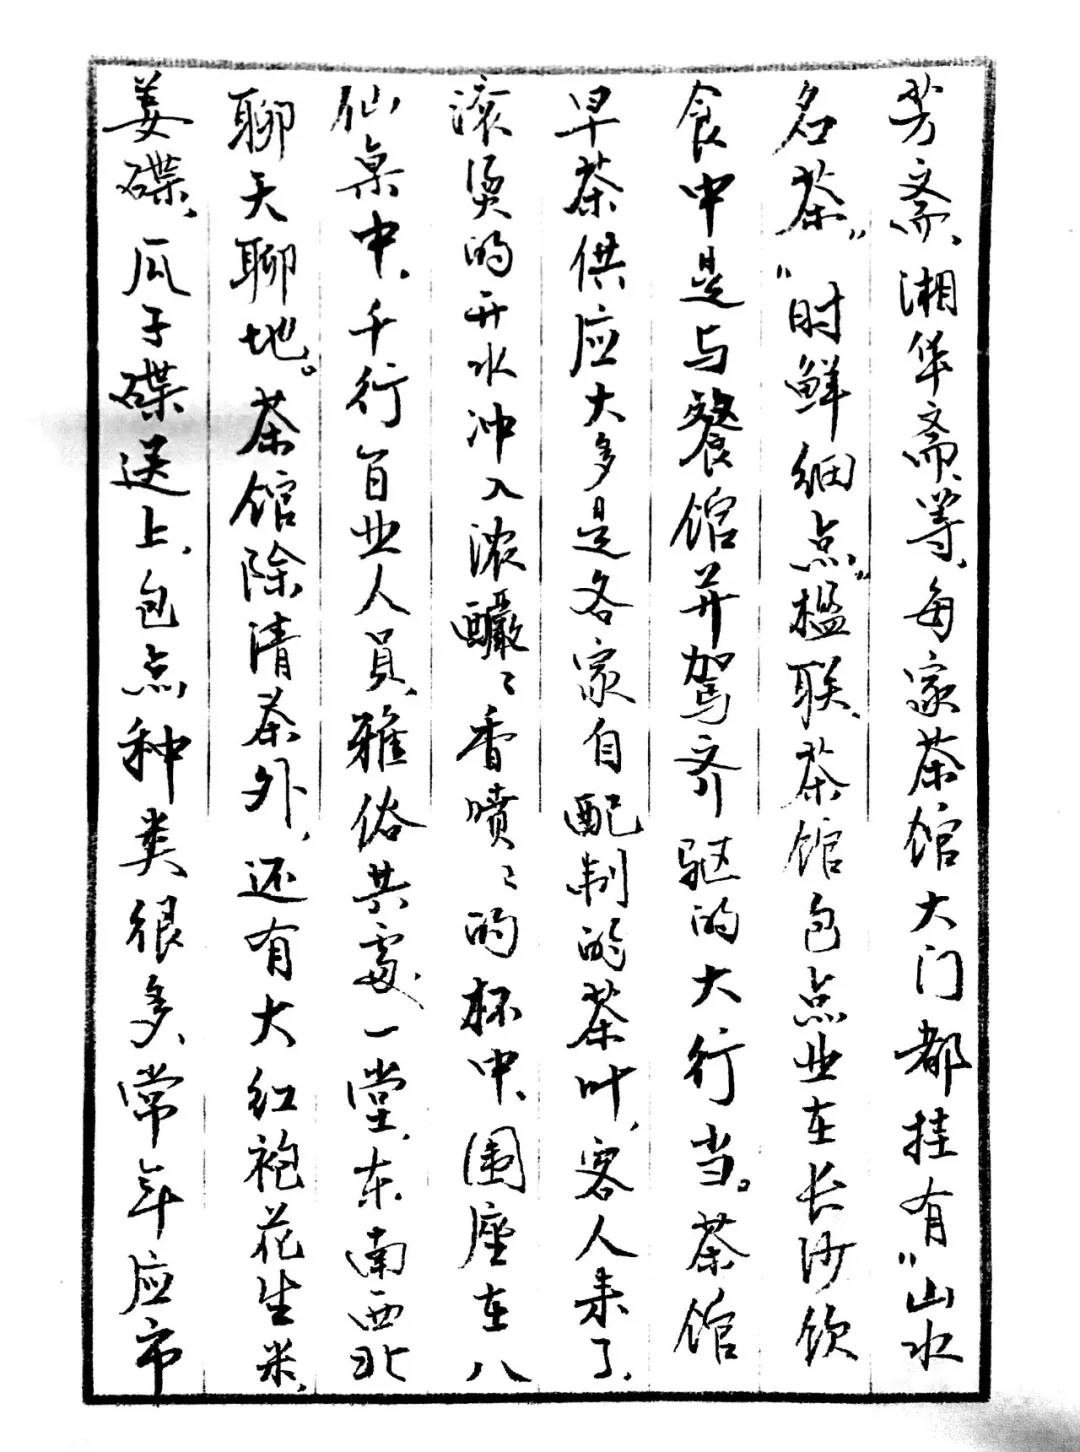 芳斋、湘华斋、等、每家茶馆大门都挂有“山水
名茶”“时鲜细点”楹联、茶馆包点业在长沙饮
食中是与餐馆并驾齐驱的大行当。茶馆
早茶供应大多是各家自配制的茶叶，客人来了，
滚烫的开水冲入浓酽ミ香喷ミ的杯中、围座在八
仙桌中，千行百业人員，雅俗共處一堂，东南西北
聊天聊地。茶馆除清茶外，还有大红袍花生米，
姜碟，瓜子碟送上，包点种类很多、常年应市